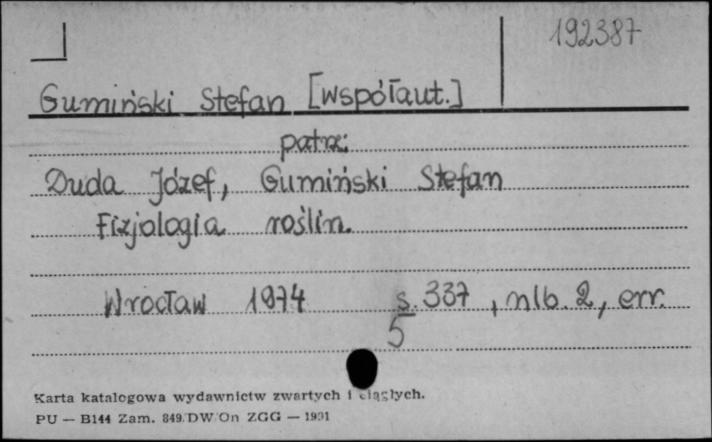 192387
Gumiński Stefan [współaut.]
patrz:
Duda Józef, Gumiński Stefan
Fizjologia roślin.
Wrocław 1974 s. 337, nlb. 2, err.
5
Karta katalogowa wydawnictw zwartych i ciągłych.
PU — B144 Zam. 849/DW/On ZGG — 1991